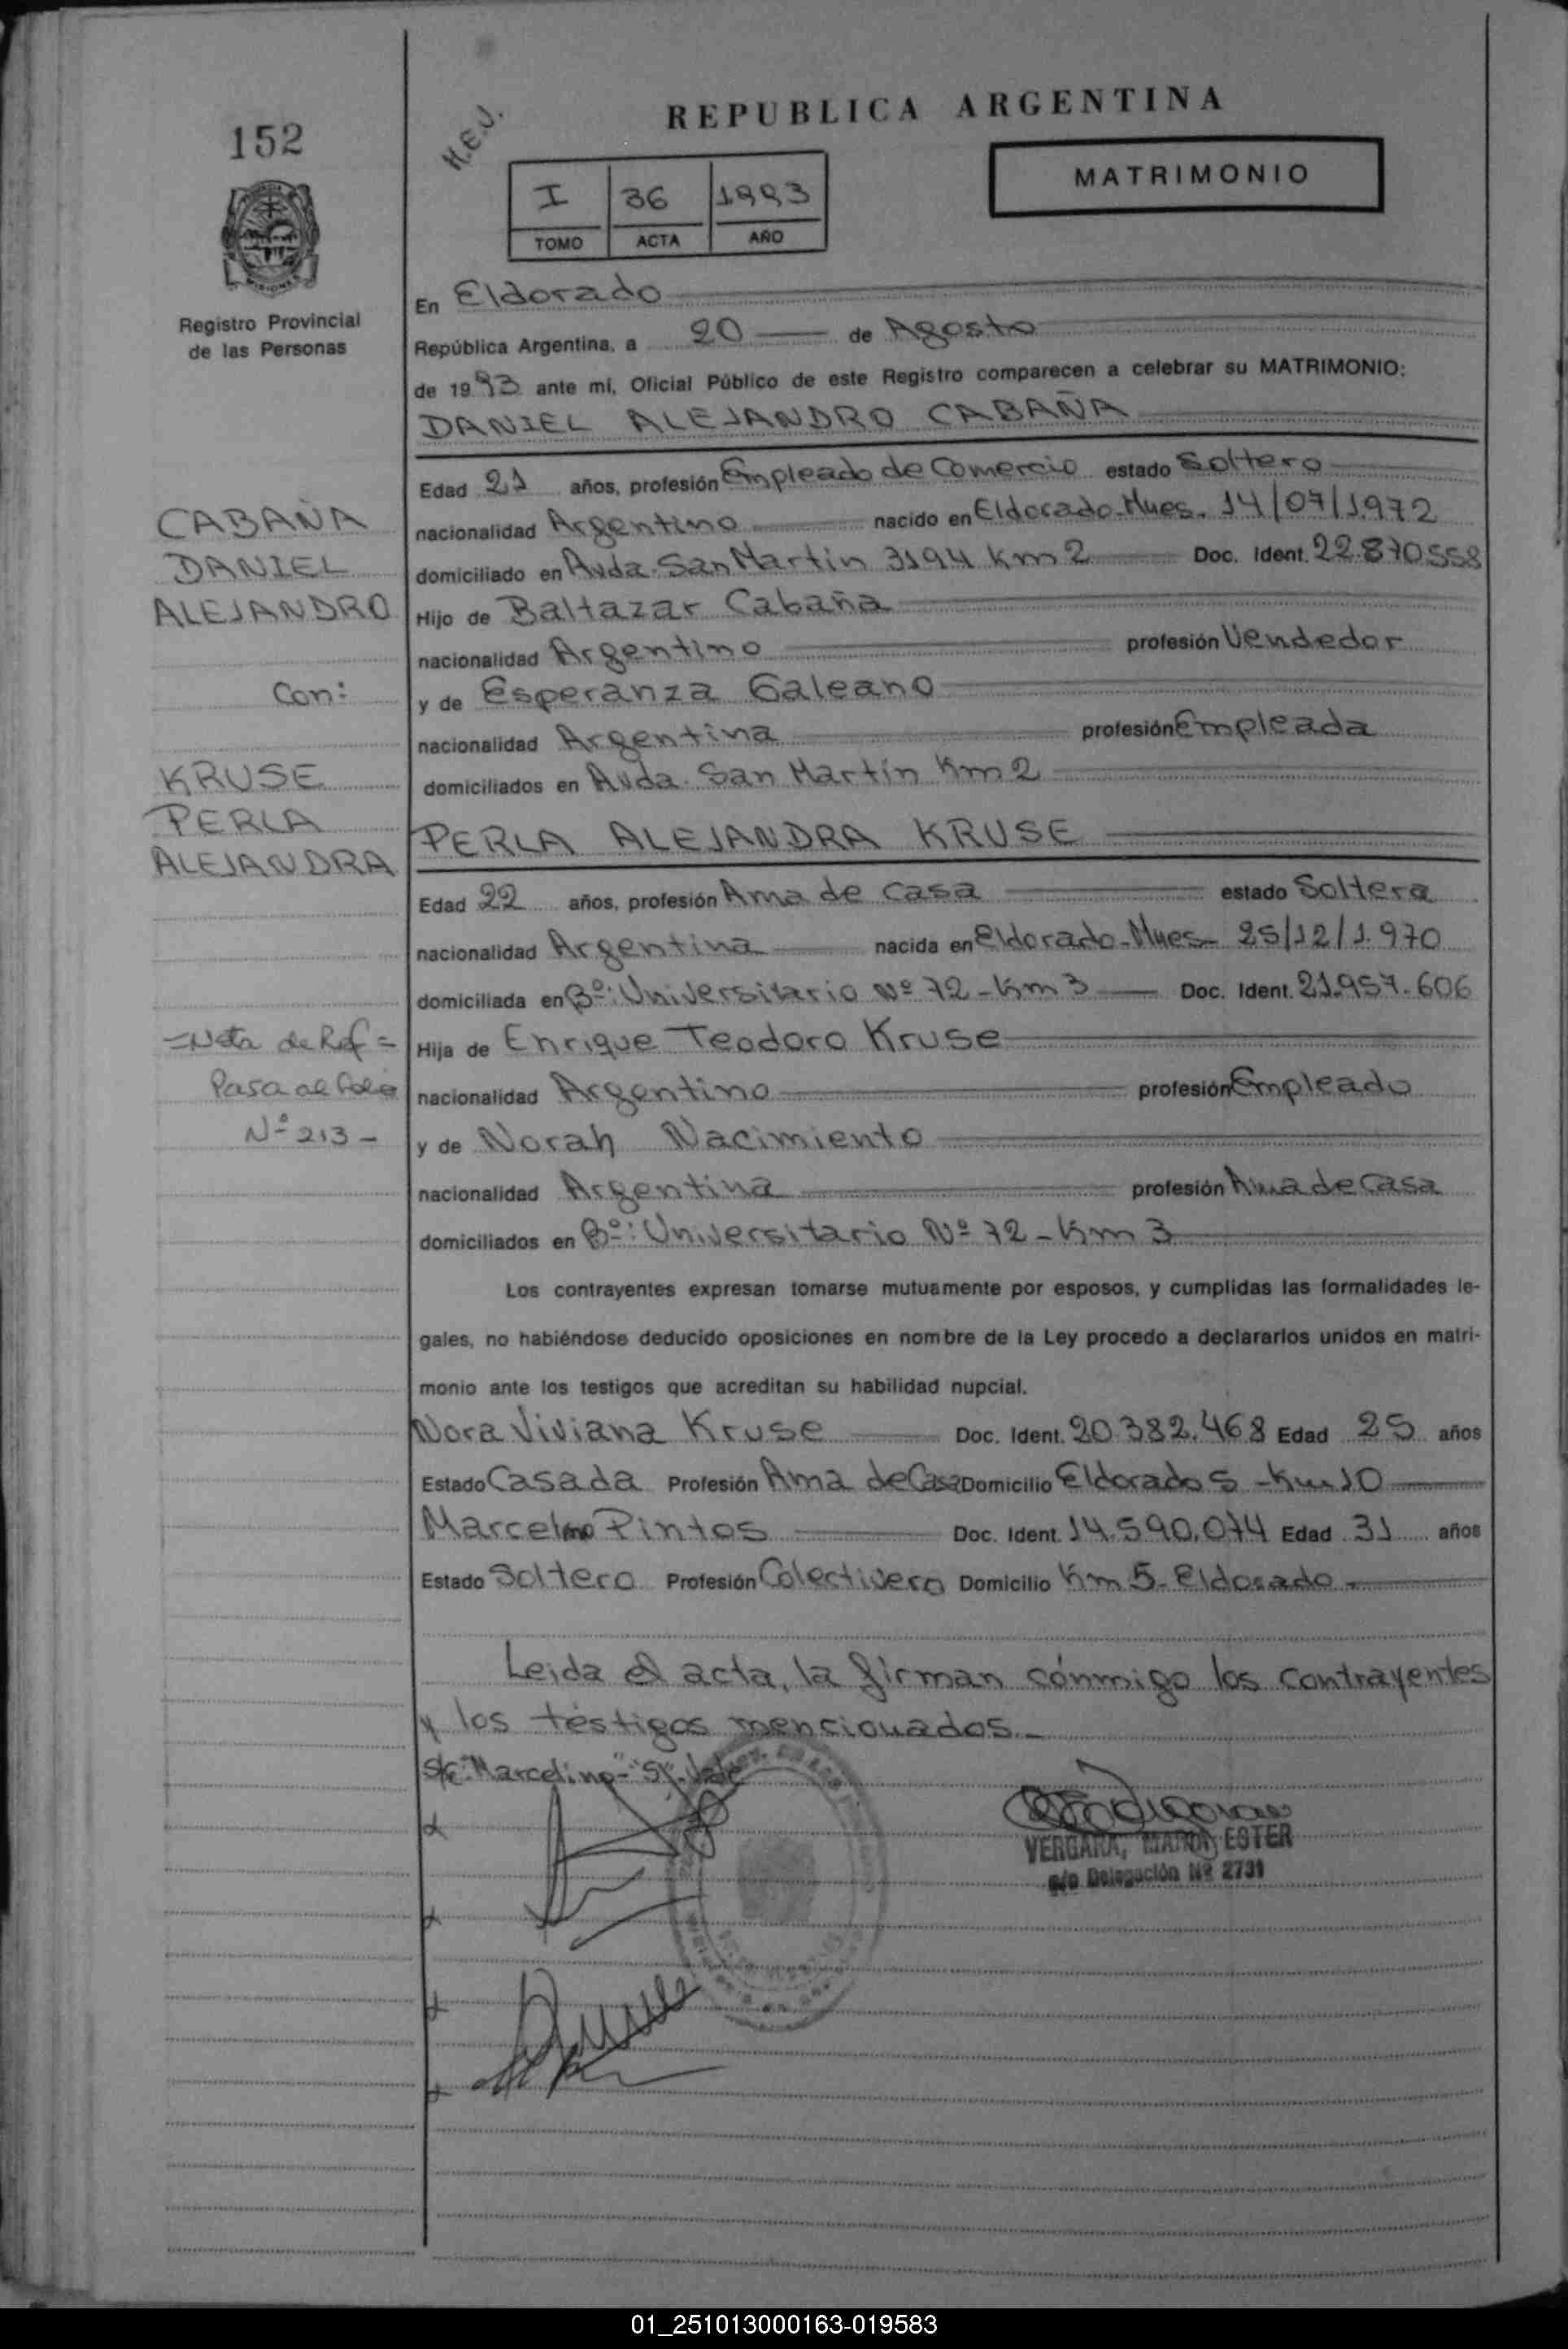 152
H.E.J.
REPUBLICA ARGENTINA
MATRIMONIO
I 36 1993
TOMO ACTA AÑO
Registro Provincial
de las Personas
En Eldorado
República Argentina, a 20 de Agosto
de 1993 ante mi, Oficial Público de este Registro comparecen a celebrar su MATRIMONIO:
DANIEL ALEJANDRO CABAÑA
Edad 21 años, profesión Empleado de Comercio estado Soltero
nacionalidad Argentino nacido en Eldorado-Mnes. 14/07/1972
domiciliado en Avda. San Martín 3194 Km 2 Doc. Ident. 22.870558
Hijo de Baltazar Cabaña
nacionalidad Argentino profesión Vendedor
y de Esperanza Galeano
nacionalidad Argentina profesión Empleada
domiciliados en Avda. San Martín Km 2
CABAÑA
DANIEL
ALEJANDRO
Con:
KRUSE
PERLA
ALEJANDRA
PERLA ALEJANDRA KRUSE
Edad 22 años, profesión Ama de casa estado Soltera
nacionalidad Argentina nacida en Eldorado-Mnes- 25/12/1.970
domiciliada en Bº: Universitario Nº 72-Km 3 Doc. Ident. 21.957.606
Hija de Enrique Teodoro Kruse
nacionalidad Argentino profesión Empleado
y de Norah Nacimiento
nacionalidad Argentina profesión Ama de Casa
domiciliados en Bº: Universitario Nº 72-Km 3
=Nota de Ref=
Pasa al folio
Nº 213-
Los contrayentes expresan tomarse mutuamente por esposos, y cumplidas las formalidades le-
gales, no habiéndose deducido oposiciones en nombre de la Ley procedo a declararlos unidos en matri-
monio ante los testigos que acreditan su habilidad nupcial.
Nora Viviana Kruse Doc. Ident. 20.382.468 Edad 25 años
Estado Casada Profesión Ama de Casa Domicilio Eldorado - Km 10
Marcelino Pintos Doc. Ident. 14.590.074 Edad 31 años
Estado Soltero Profesión Colectivero Domicilio Km 5- Eldorado.
Leida el acta, la firman conmigo los contrayentes
y los testigos mencionados.-
S/c: "Marcelino"- Vale
VERGARA, MARIA ESTER
a/c Delegación Nº 2731
01_251013000163-019583